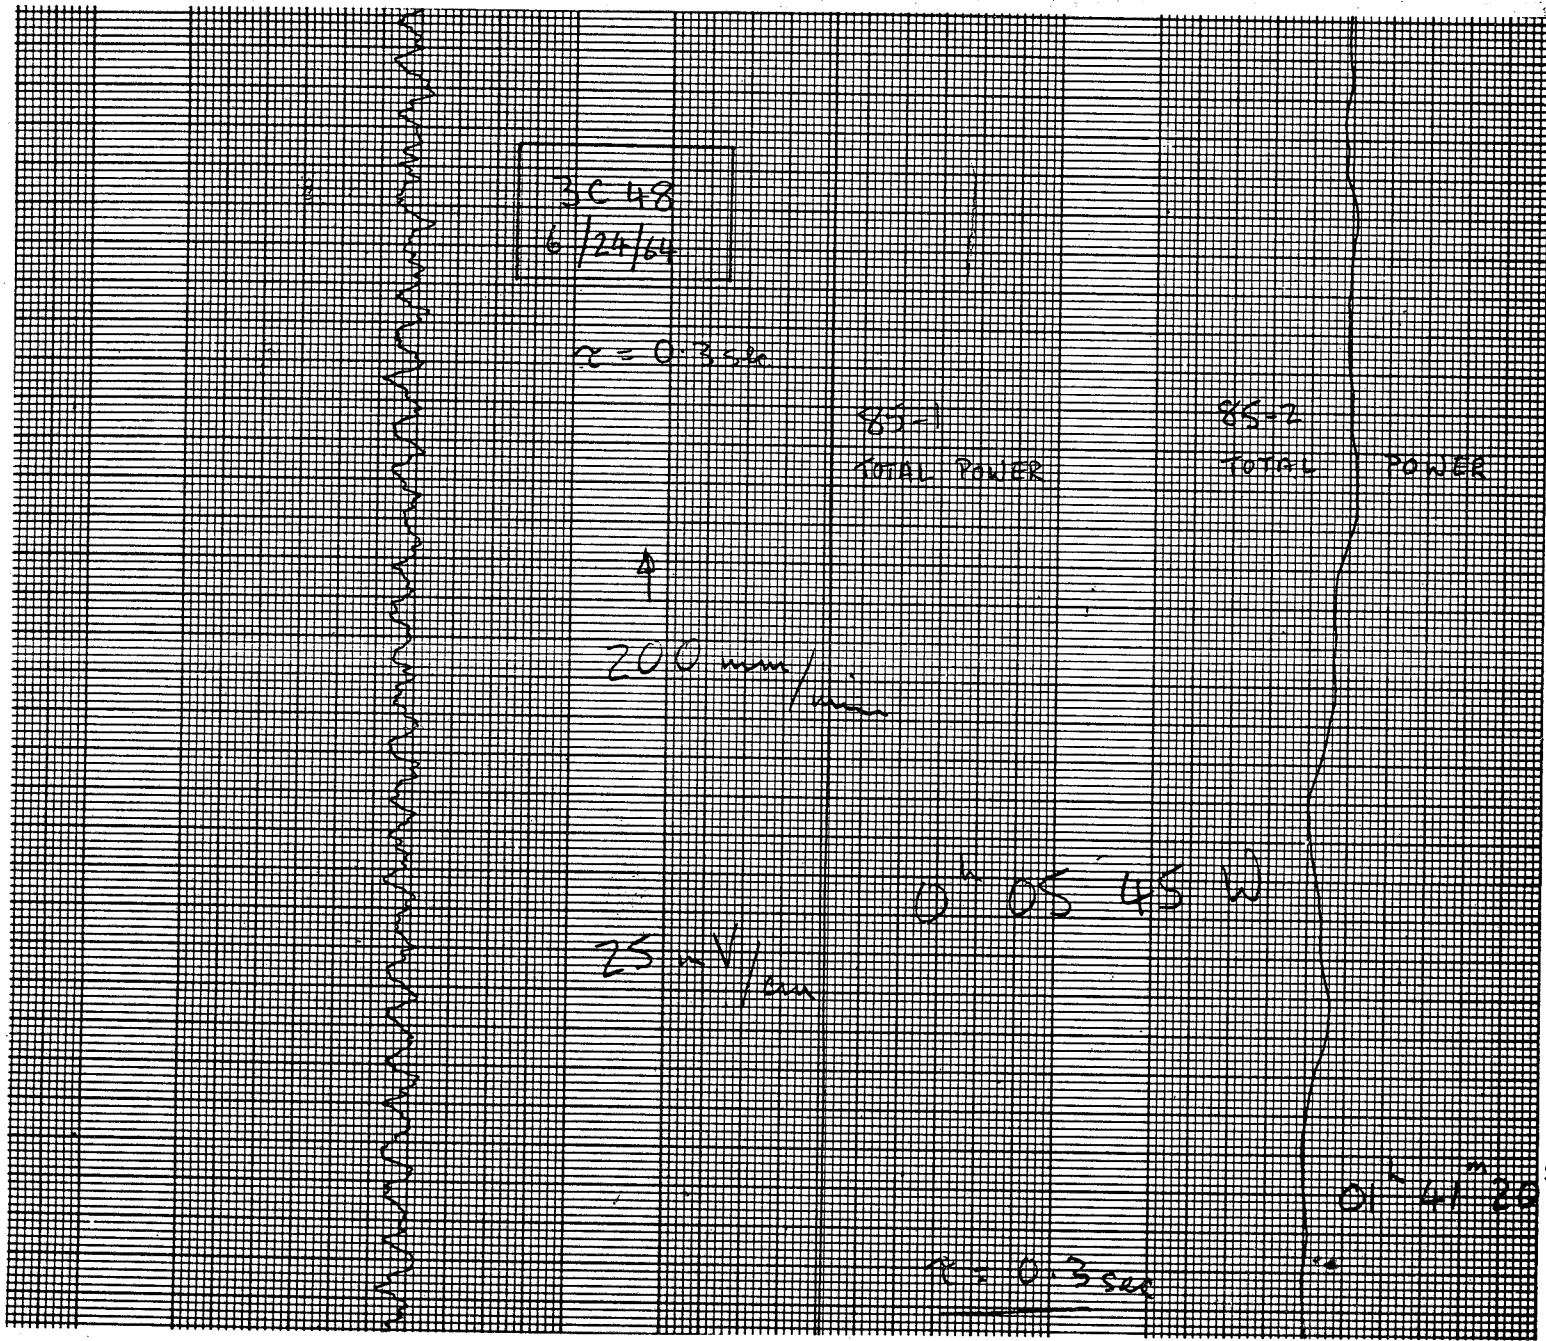 3C 48
6/24/64
τ = 0.3 sec
85-1
TOTAL POWER
85-2
TOTAL POWER
200 mm/min
0ʰ 05 45 W
25 mV/cm
01ʰ 41ᵐ 20ˢ
τ = 0.3 sec